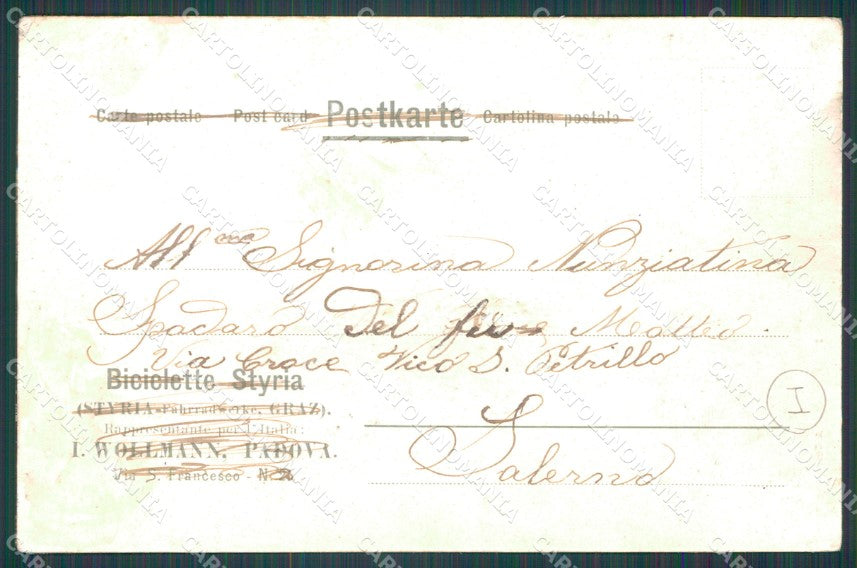 Carte postale Post card Postkarte Cartolina postale
All'ma Signorina Nunziatina
Spadaro Del fu Matteo
Via Croce Vico S. Petrillo
Biciclette Styria
(STYRIA-Fahrradwerke, GRAZ).
Rappresentante per l'Italia:
I. WOLLMANN, PADOVA.
Via S. Francesco - N.
Salerno
I
CARTOLINOMANIA